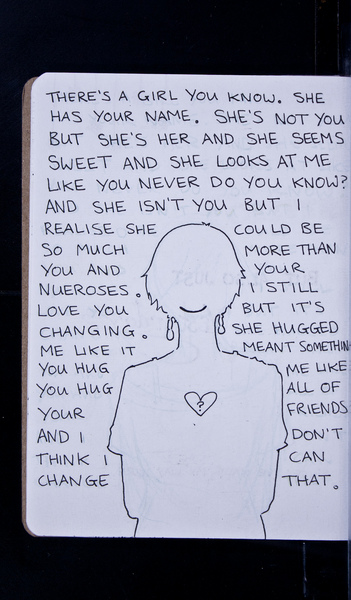 THERE'S A GIRL YOU KNOW. SHE
HAS YOUR NAME. SHE'S NOT YOU
BUT SHE'S HER AND SHE SEEMS
SWEET AND SHE LOOKS AT ME
LIKE YOU NEVER DO YOU KNOW?
AND SHE ISN'T YOU BUT I
REALISE SHE COULD BE
SO MUCH MORE THAN
YOU AND YOUR
NUEROSES. I STILL
LOVE YOU BUT IT'S
CHANGING. SHE HUGGED
ME LIKE IT MEANT SOMETHIN
YOU HUG ME LIKE
YOU HUG ALL OF
YOUR FRIENDS
AND I DON'T
THINK I CAN
CHANGE THAT.
?